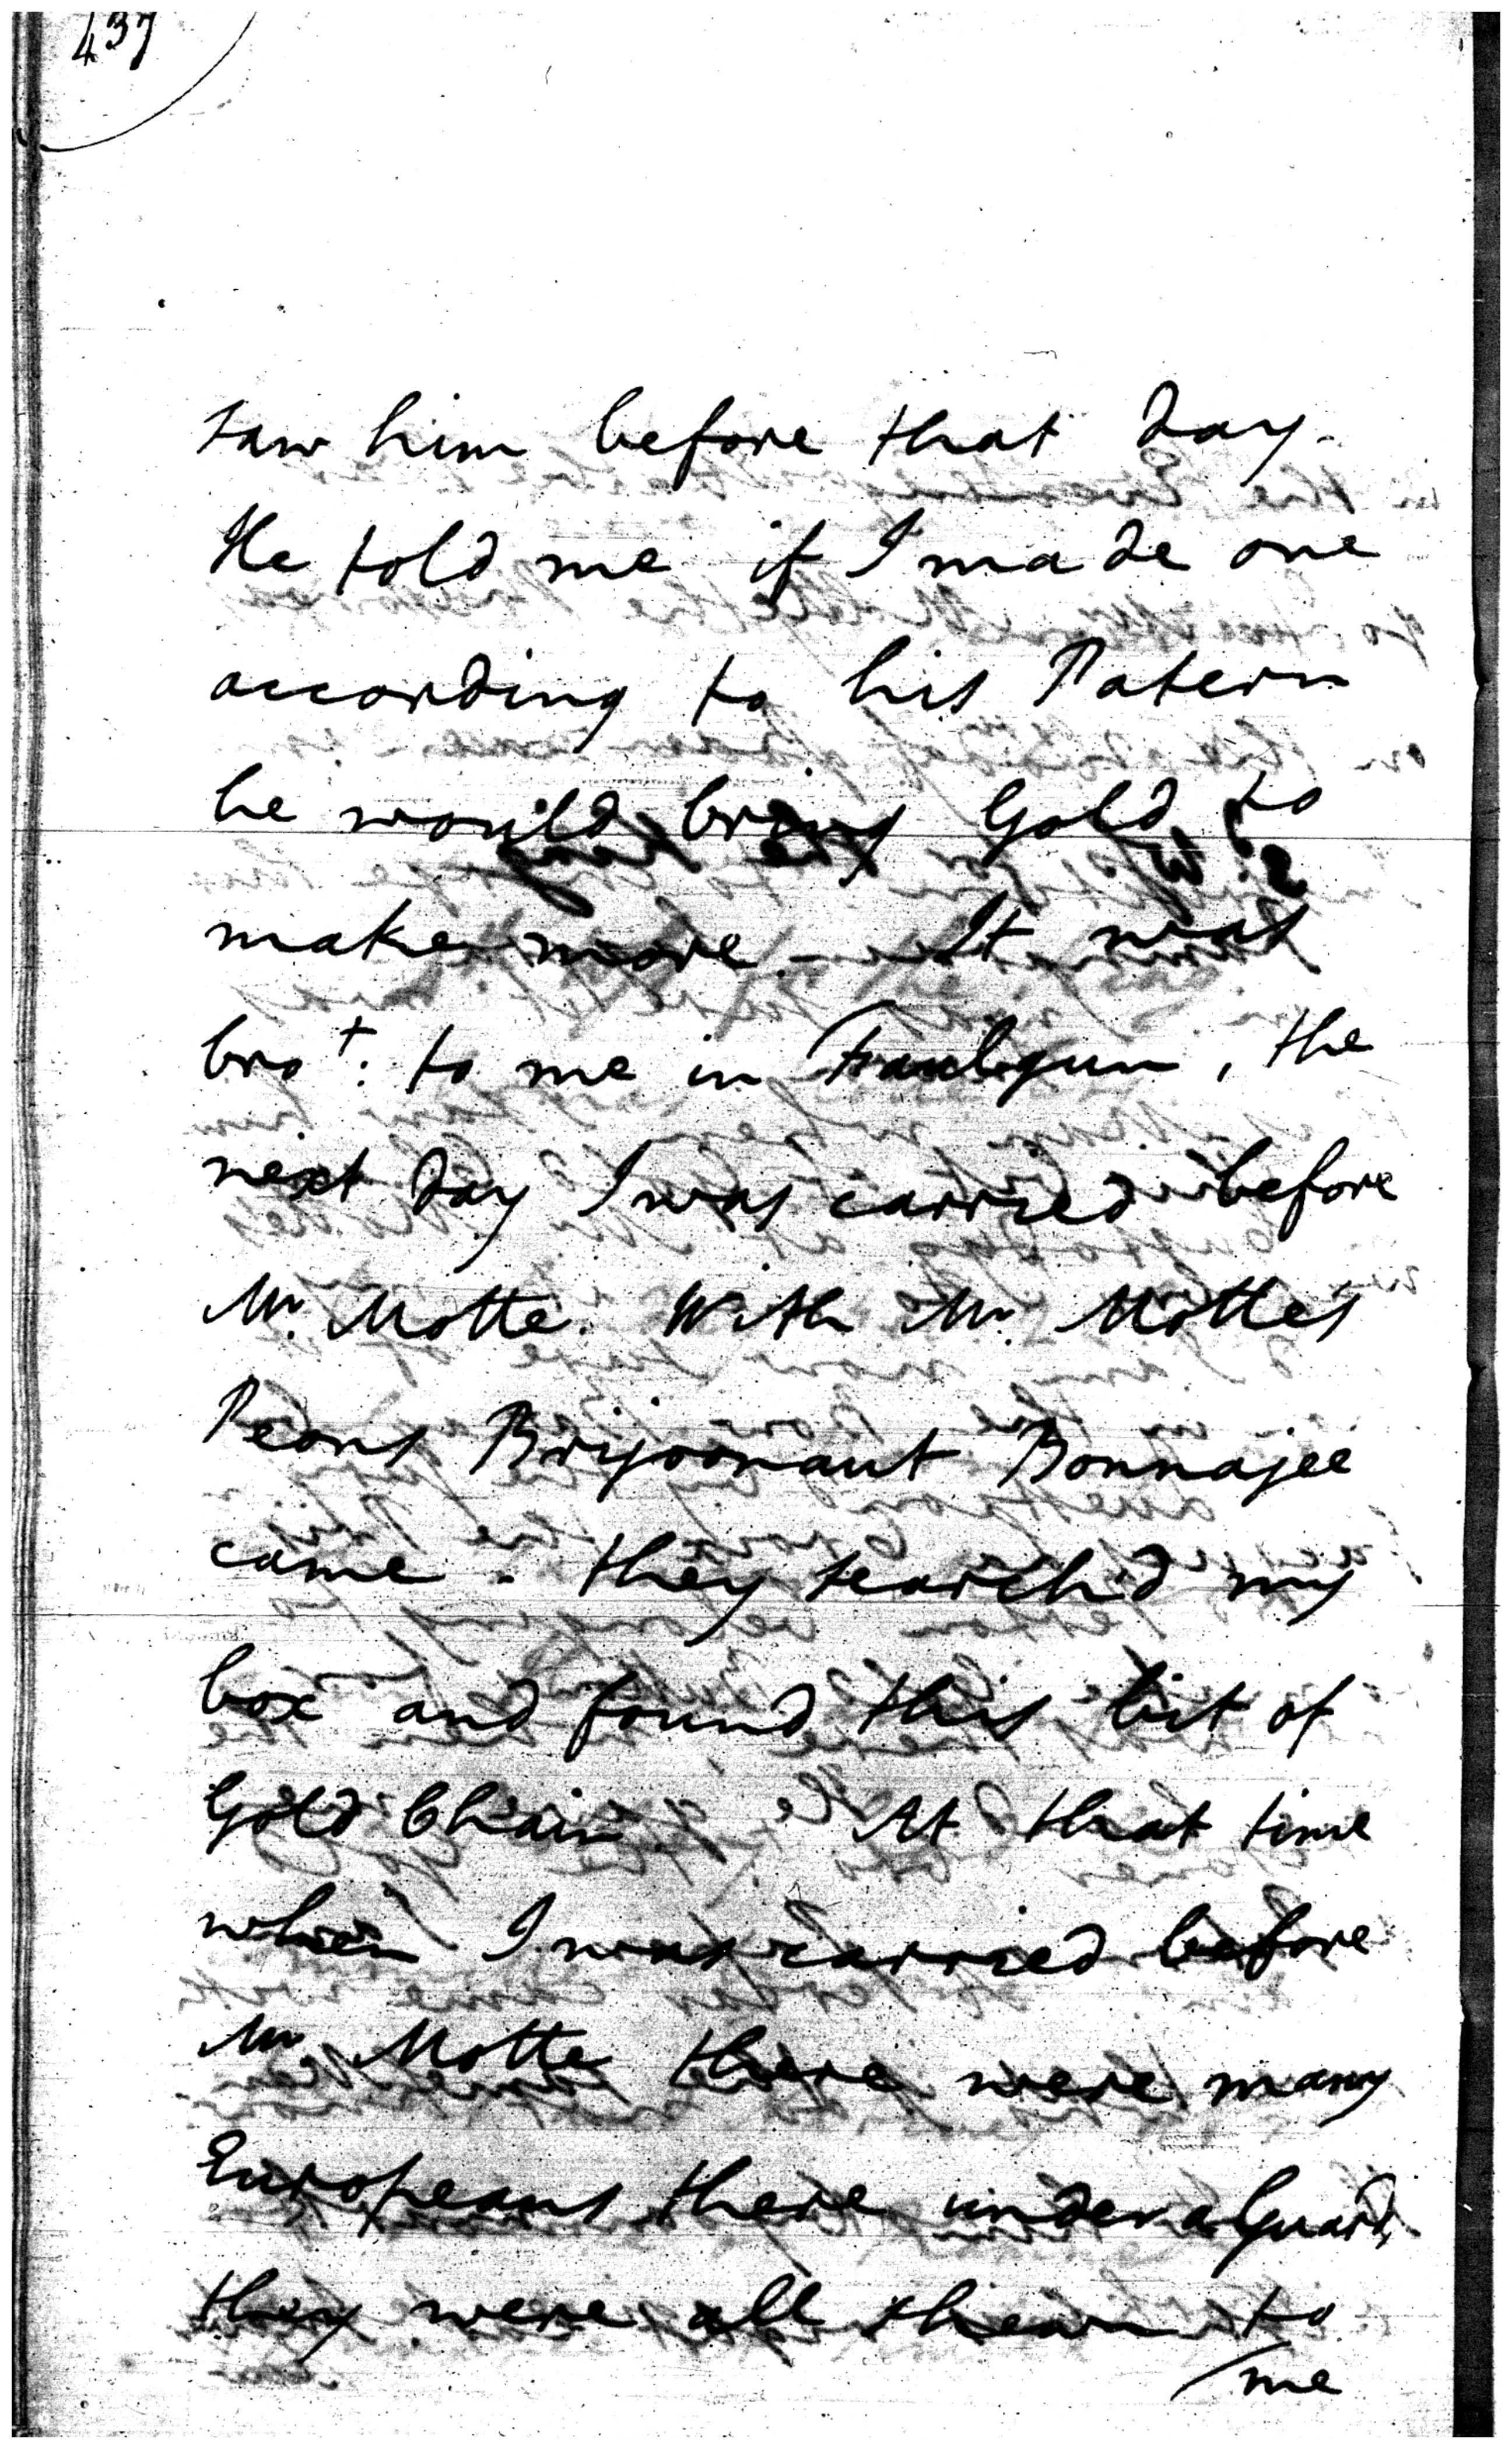 437
saw him before that day.
He told me if I made one
according to his Patern
he would bring Gold to
make more. It was
bro^t: to me in Faulgun, the
next day I was carried before
Mr. Motte. With Mr. Motte's
Peons Brijoonaut Bonnajee
came - they search'd my
box and found this bit of
Gold Chain. At that time
when I was carried before
Mr. Motte there were many
Europeans there under a Guard,
they were all shewn to
me